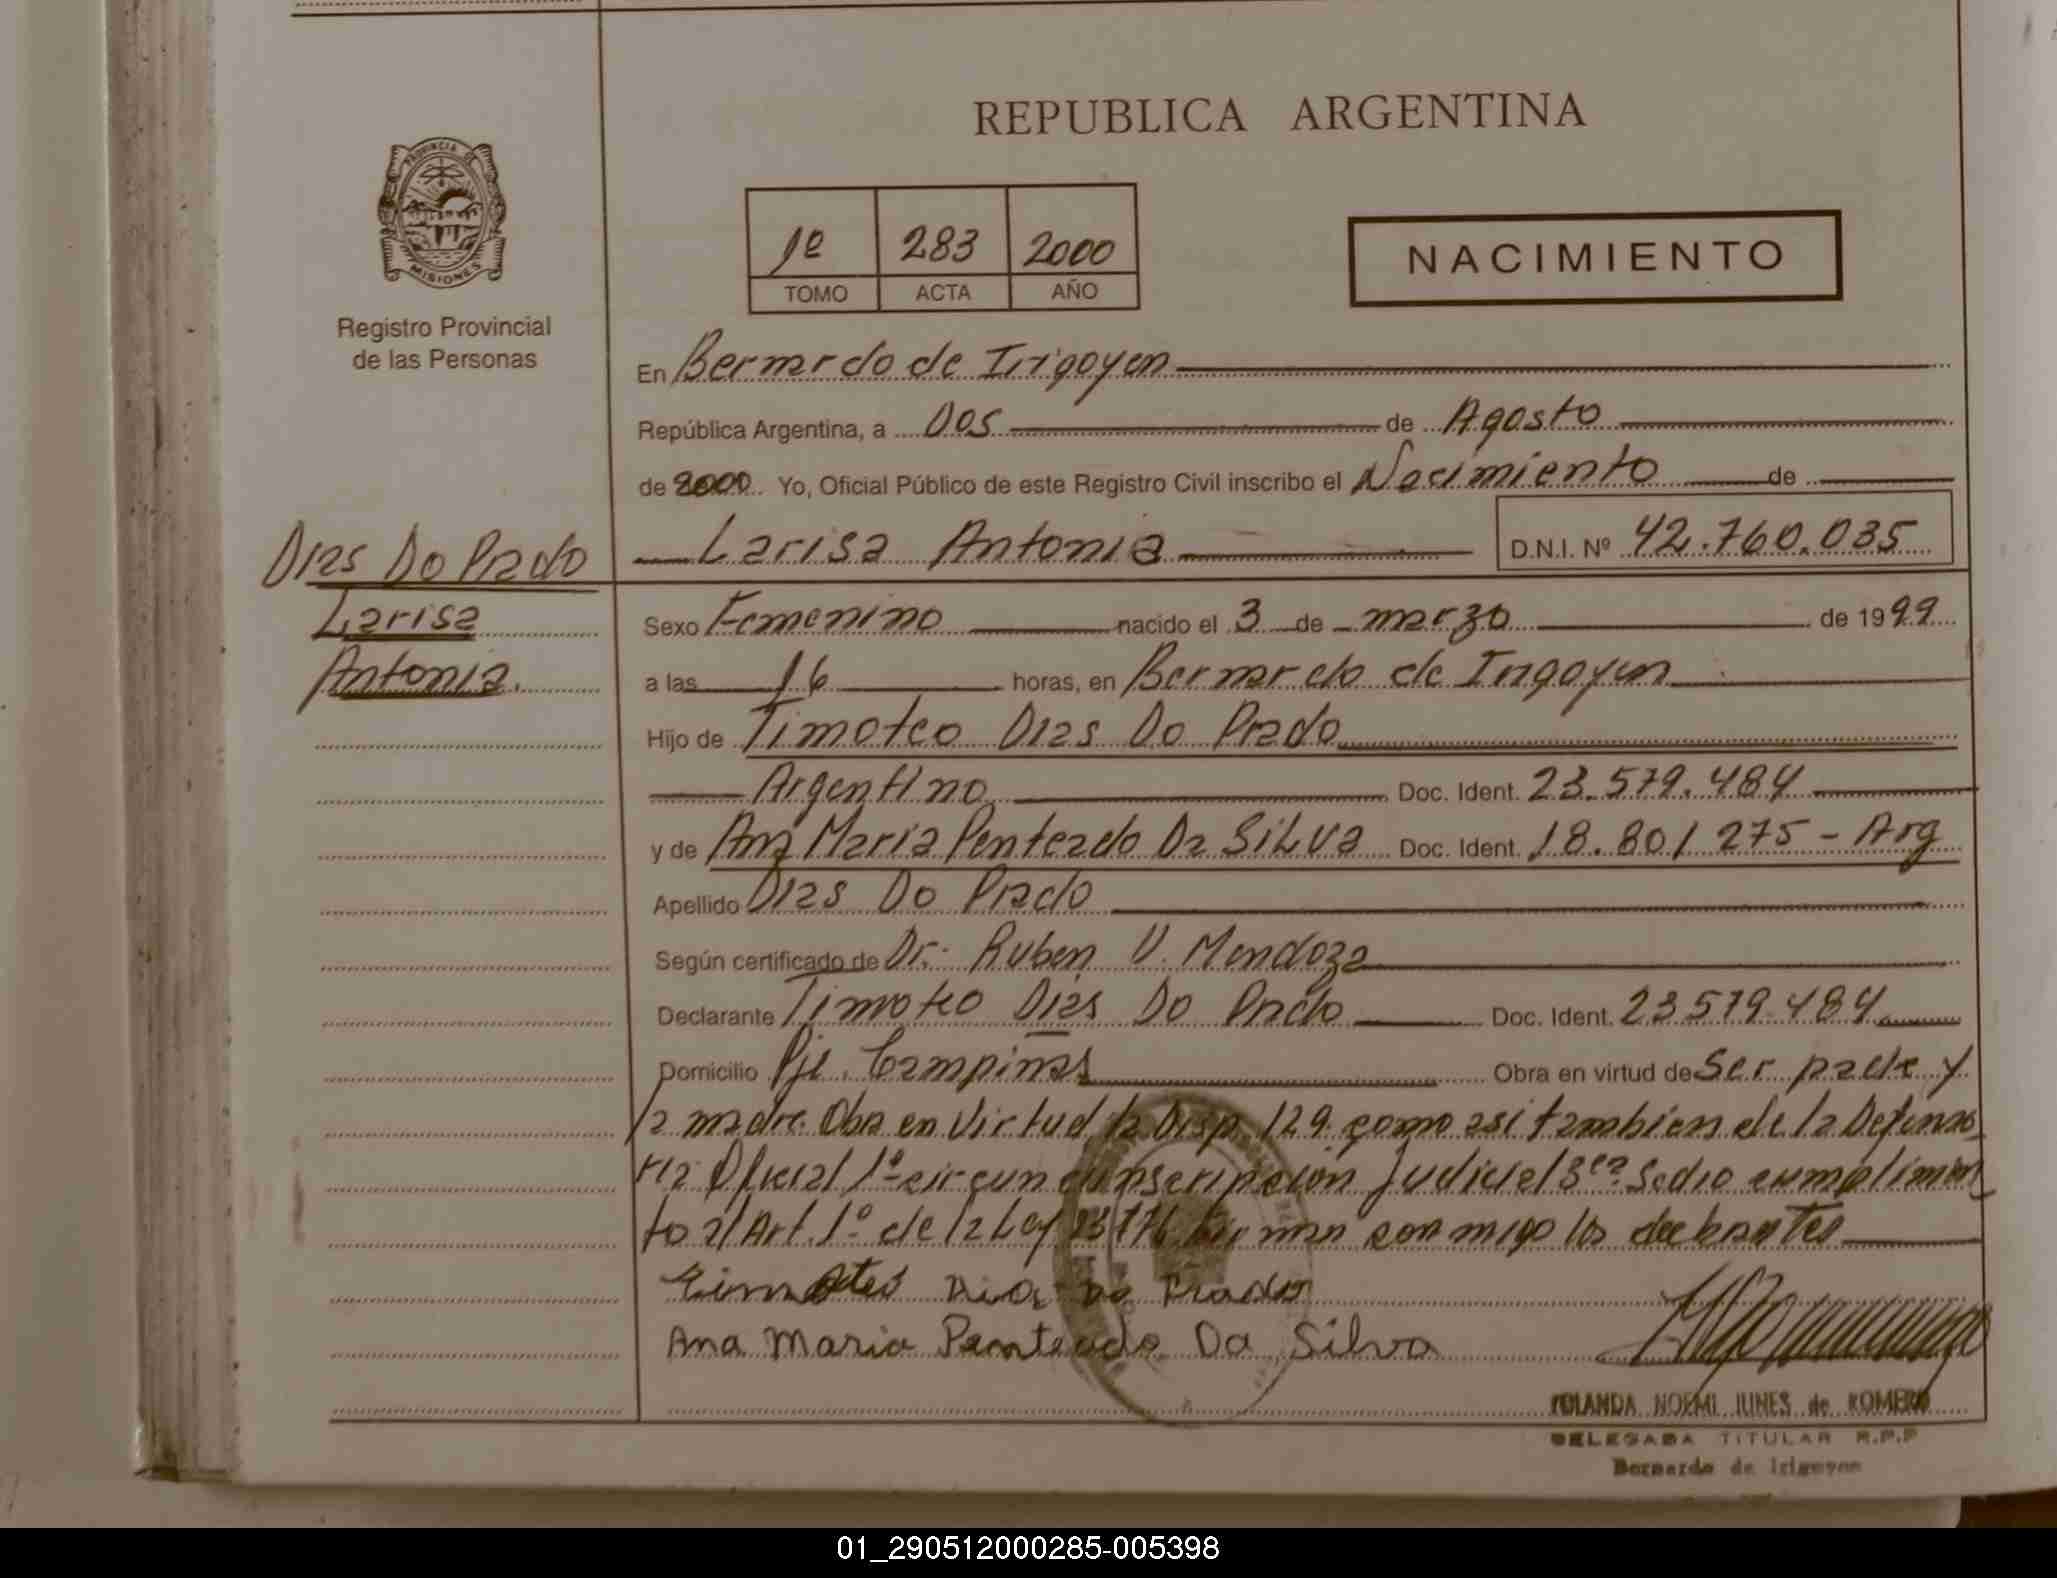 REPUBLICA ARGENTINA
PROVINCIA DE
MISIONES
Registro Provincial
de las Personas
1º 283 2000
TOMO ACTA AÑO
NACIMIENTO
En Bernardo de Irigoyen
República Argentina, a Dos de Agosto
de 2000 Yo, Oficial Público de este Registro Civil inscribo el Nacimiento de
Dias Do Prado
Larisa
Antonia.
Larisa Antonia D.N.I. Nº 42.760.035
Sexo Femenino nacido el 3 de marzo de 1999
a las 16 horas, en Bernardo de Irigoyen
Hijo de Timoteo Dias Do Prado
Argentino Doc. Ident. 23.579.484
y de Ana Maria Penteado Da Silva Doc. Ident. 18.801 275 - Arg
Apellido Dias Do Prado
Según certificado de Dr. Ruben V. Mendoza
Declarante Timoteo Dias Do Prado Doc. Ident. 23.579.484
Domicilio Pje. Campinas Obra en virtud de Ser padre y
la madre. Obra en Virtud la Disp. 129 como asi tambien de la Defenso
ria Oficial 1º circun cunscripcion Judicial 3ra Sedio cumplimien
to al Art. 1º de la Ley firman conmigo los declarantes
Dia Do Prado
Ana Maria Penteado Da Silva
YOLANDA NOEMI IUNES de ROMERO
DELEGADA TITULAR R.P.P
Bernardo de Irigoyen
01_290512000285-005398